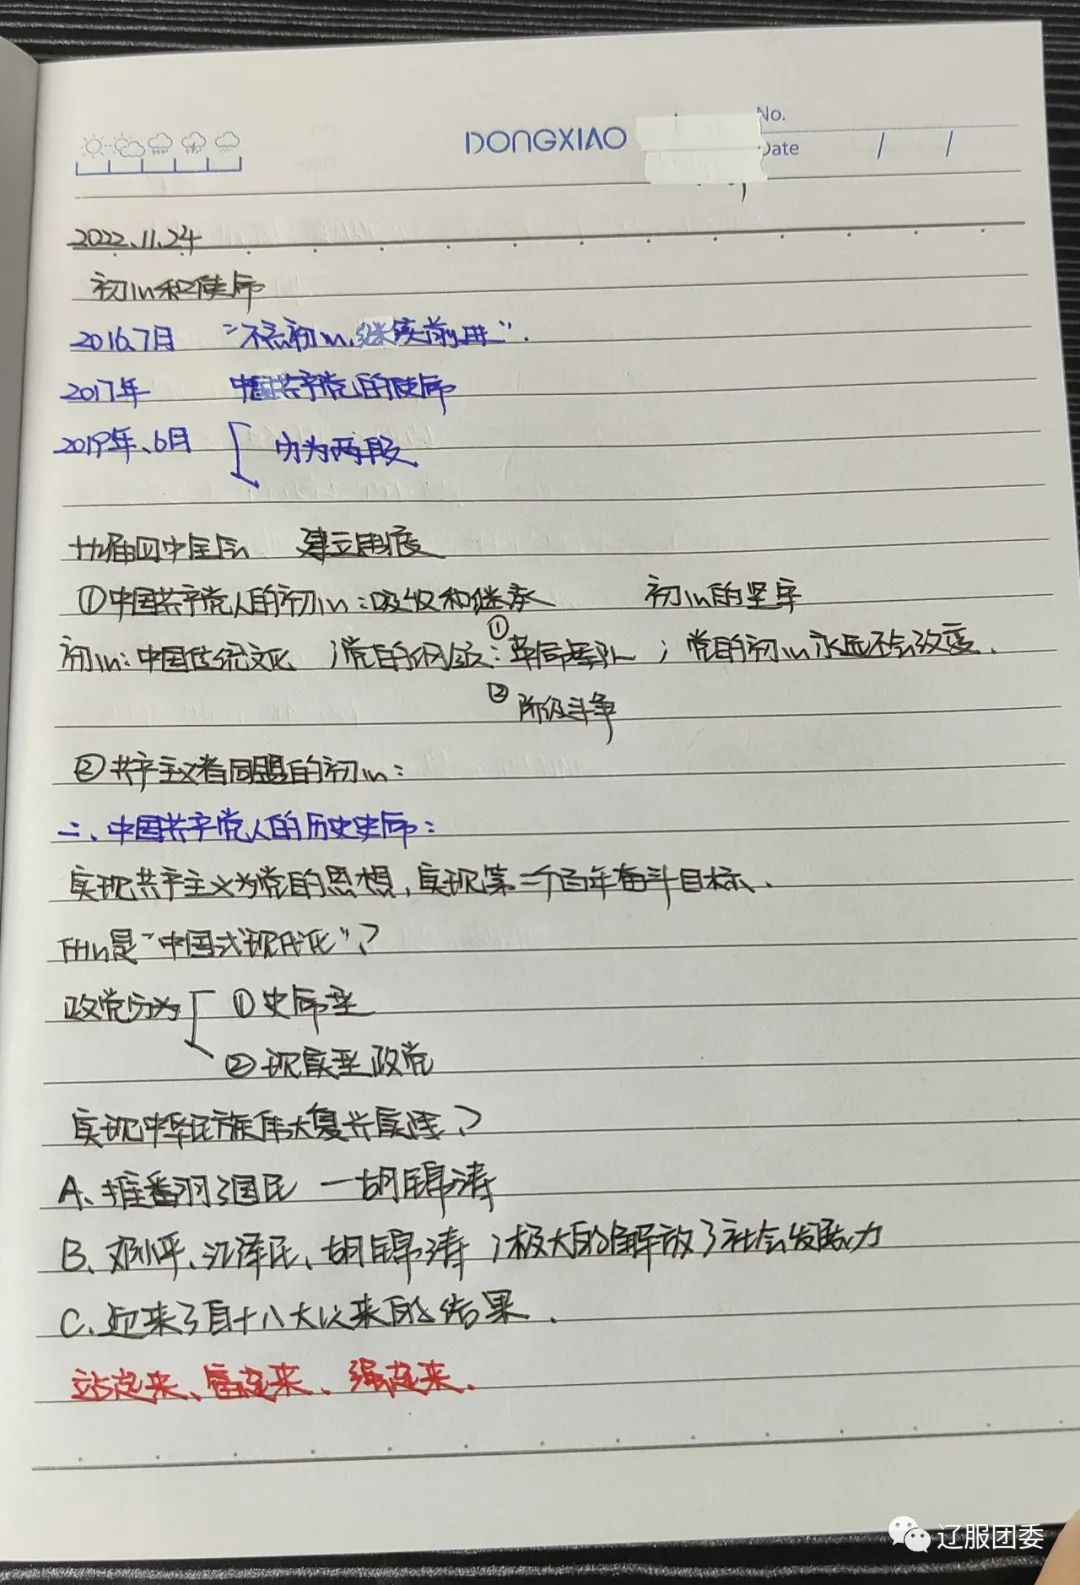 DONGXIAO
No.
Date / /
2022.11.24
初心和使命
2016.7月 "不忘初心,继续前进".
2017年 中国共产党人的使命
2019年、6月 分为两段
十九届四中全会 建立制度
①中国共产党人的初心:吸收和继承 初心的坚守
初心:中国传统文化 ;党的纲领:①革命军队 ;党的初心永远不会改变.
②阶级斗争
②共产主义者同盟的初心:
二、中国共产党人的历史使命:
实现共产主义为党的思想,实现第二个百年奋斗目标、
什么是"中国式现代化"?
政党分为 ①使命型
②现实型政党
实现中华民族伟大复兴实践?
A、推翻了国民 一胡锦涛
B、邓小平、江泽民、胡锦涛 ;极大的解放了社会发展力
C.迎来了自十八大以来的结果.
站起来、富起来、强起来.
辽服团委